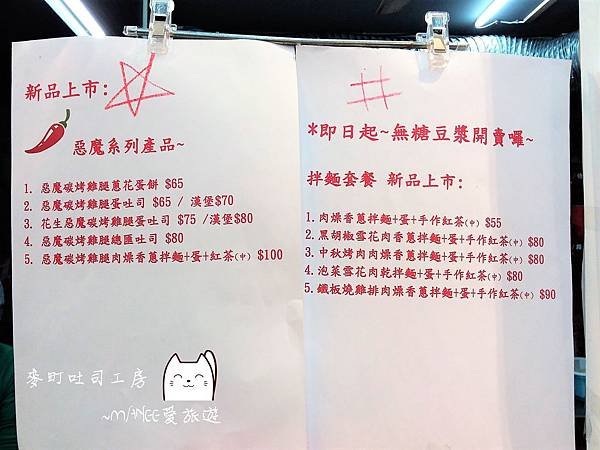 新品上市:
惡魔系列產品~
1. 惡魔碳烤雞腿蔥花蛋餅 $65
2. 惡魔碳烤雞腿蛋吐司 $65 / 漢堡$70
3. 花生惡魔碳烤雞腿蛋吐司 $75 /漢堡$80
4. 惡魔碳烤雞腿總匯吐司 $80
5. 惡魔碳烤雞腿肉燥香蔥拌麵+蛋+紅茶(中) $100
麥町吐司工房
~MANCC愛旅遊
*即日起~無糖豆漿開賣囉~
拌麵套餐 新品上市:
1.肉燥香蔥拌麵+蛋+手作紅茶(中) $55
2.黑胡椒雪花肉香蔥拌麵+蛋+手作紅茶(中) $80
3.中秋烤肉肉燥香蔥拌麵+蛋+手作紅茶(中) $80
4.泡菜雪花肉乾拌麵+蛋+手作紅茶(中) $80
5.鐵板燒雞排肉燥香蔥拌麵+蛋+手作紅茶(中) $90